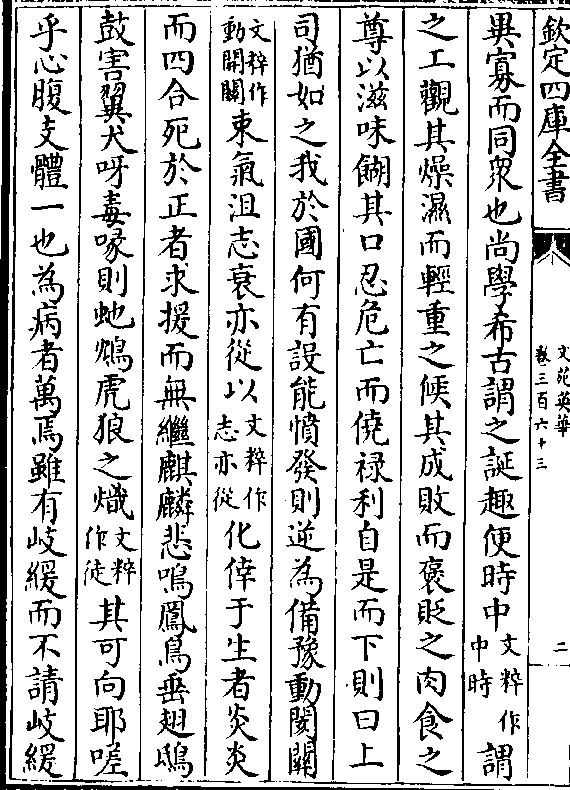 欽定四庫全書
文苑英華
卷三百六十三
二
異寡而同衆也尚學希古謂之誕趣便時中文粹作中時謂
之工觀其燥濕而輕重之候其成敗而褒貶之肉食之
尊以滋味餬其口忍危亡而僥禄利自是而下則曰上
司猶如之我於國何有設能憤發則逆為備豫動関關
文粹作動開關東氣沮志衰亦從以文粹作志亦從化倖于生者炎炎
而四合死於正者求援而無繼麒麟悲鳴鳳鳥垂翅鴟
鼓害翼犬呀毒喙則虵鴆虎狼之熾文粹作徒其可向耶嗟
乎心腹支體一也為病者萬焉雖有岐緩而不請岐緩